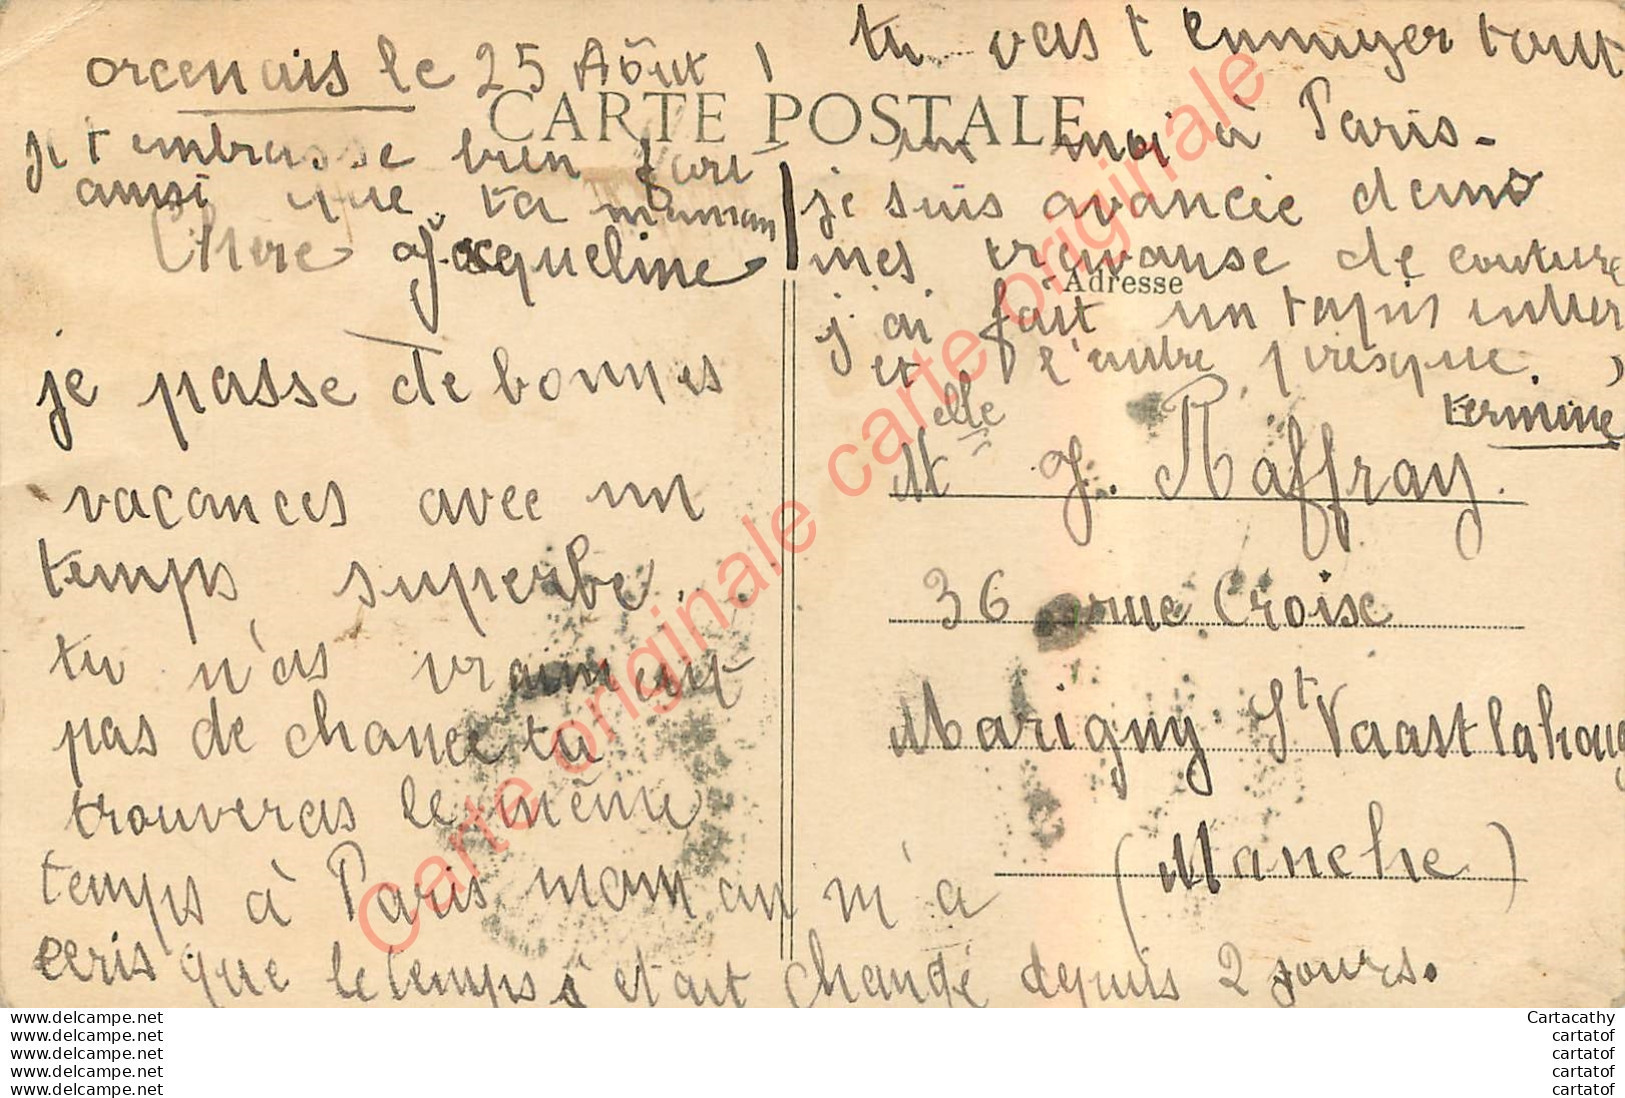 orcenais le 25 Aôut
CARTE POSTALE
Chere Jacqueline
je passe de bonnes
vacances avec un
temps superbe.
tu n'as vraiment
pas de chance tu
trouveras le même
temps à Paris maman m'a
ecris que le temps s'etait changé depuis 2 jours.
tu vas t'ennuyer tout
un moi à Paris-
je suis avancée dans
mes travause de couture
j'ai fait un tapis entier
et l'autre presque
terminé
je t'embrasse bien fort
ausi que ta maman
Adresse
Melle J. Raffray.
36 rue Croise
Marigny St Vaast lahoug
(Manche)
Carte originale carte originale carte originale
www.delcampe.net
www.delcampe.net
www.delcampe.net
www.delcampe.net
www.delcampe.net
Cartacathy
cartatof
cartatof
cartatof
cartatof